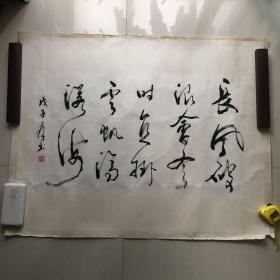 長風破
浪會有
时直掛
雲帆濟
滄海
戊子